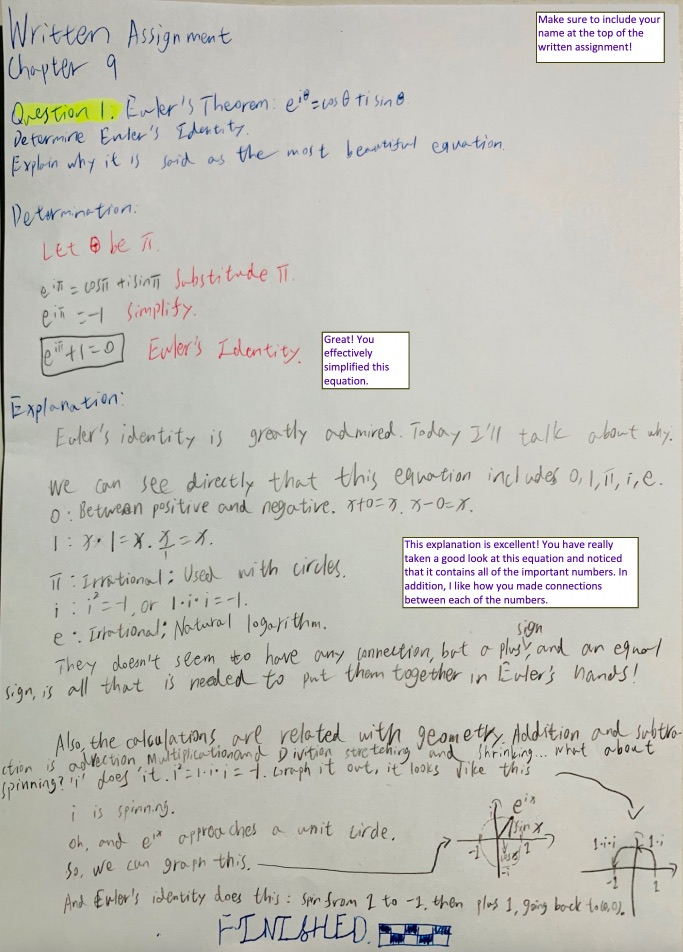 Written Assignment
Make sure to include your
name at the top of the
written assignment!
Chapter 9
Question 1: Euler's Theorem: e^iθ=cosθ+isinθ
Determine Euler's Identity.
Explain why it is said as the most beautiful equation.
Determination:
Let θ be π.
e^iπ = cosπ +isinπ Substitude π.
e^iπ = -1 Simplify.
e^iπ+1=0 Euler's Identity.
Great! You
effectively
simplified this
equation.
Explanation:
Euler's identity is greatly admired. Today I'll talk about why.
We can see directly that this equation includes 0, 1, π, i, e.
0: Between positive and negative. x+0=x. x-0=x.
1: x·1=x. x/1=x.
π: Irrational; Used with circles.
i: i²=-1, or 1·i·i=-1.
e: Irrational; Natural logarithm.
This explanation is excellent! You have really
taken a good look at this equation and noticed
that it contains all of the important numbers. In
addition, I like how you made connections
between each of the numbers.
They doesn't seem to have any connection, but a plus sign, and an equal
sign, is all that is needed to put them together in Euler's hands!
Also, the calculations are related with geometry. Addition and subtra-
ction is adrection, Multiplication and Divition stretching and shrinking... what about
spinning? 'i' does it. i²=1·i·i=-1. Graph it out, it looks like this
i is spinning.
Oh, and e^ix approaches a unit circle.
So, we can graph this.
e^ix
sin x
-1
1
-i
1·i·i
1·i
-1
1
And Euler's identity does this: spin from 1 to -1, then plus 1, going back to (0,0).
FINISHED.